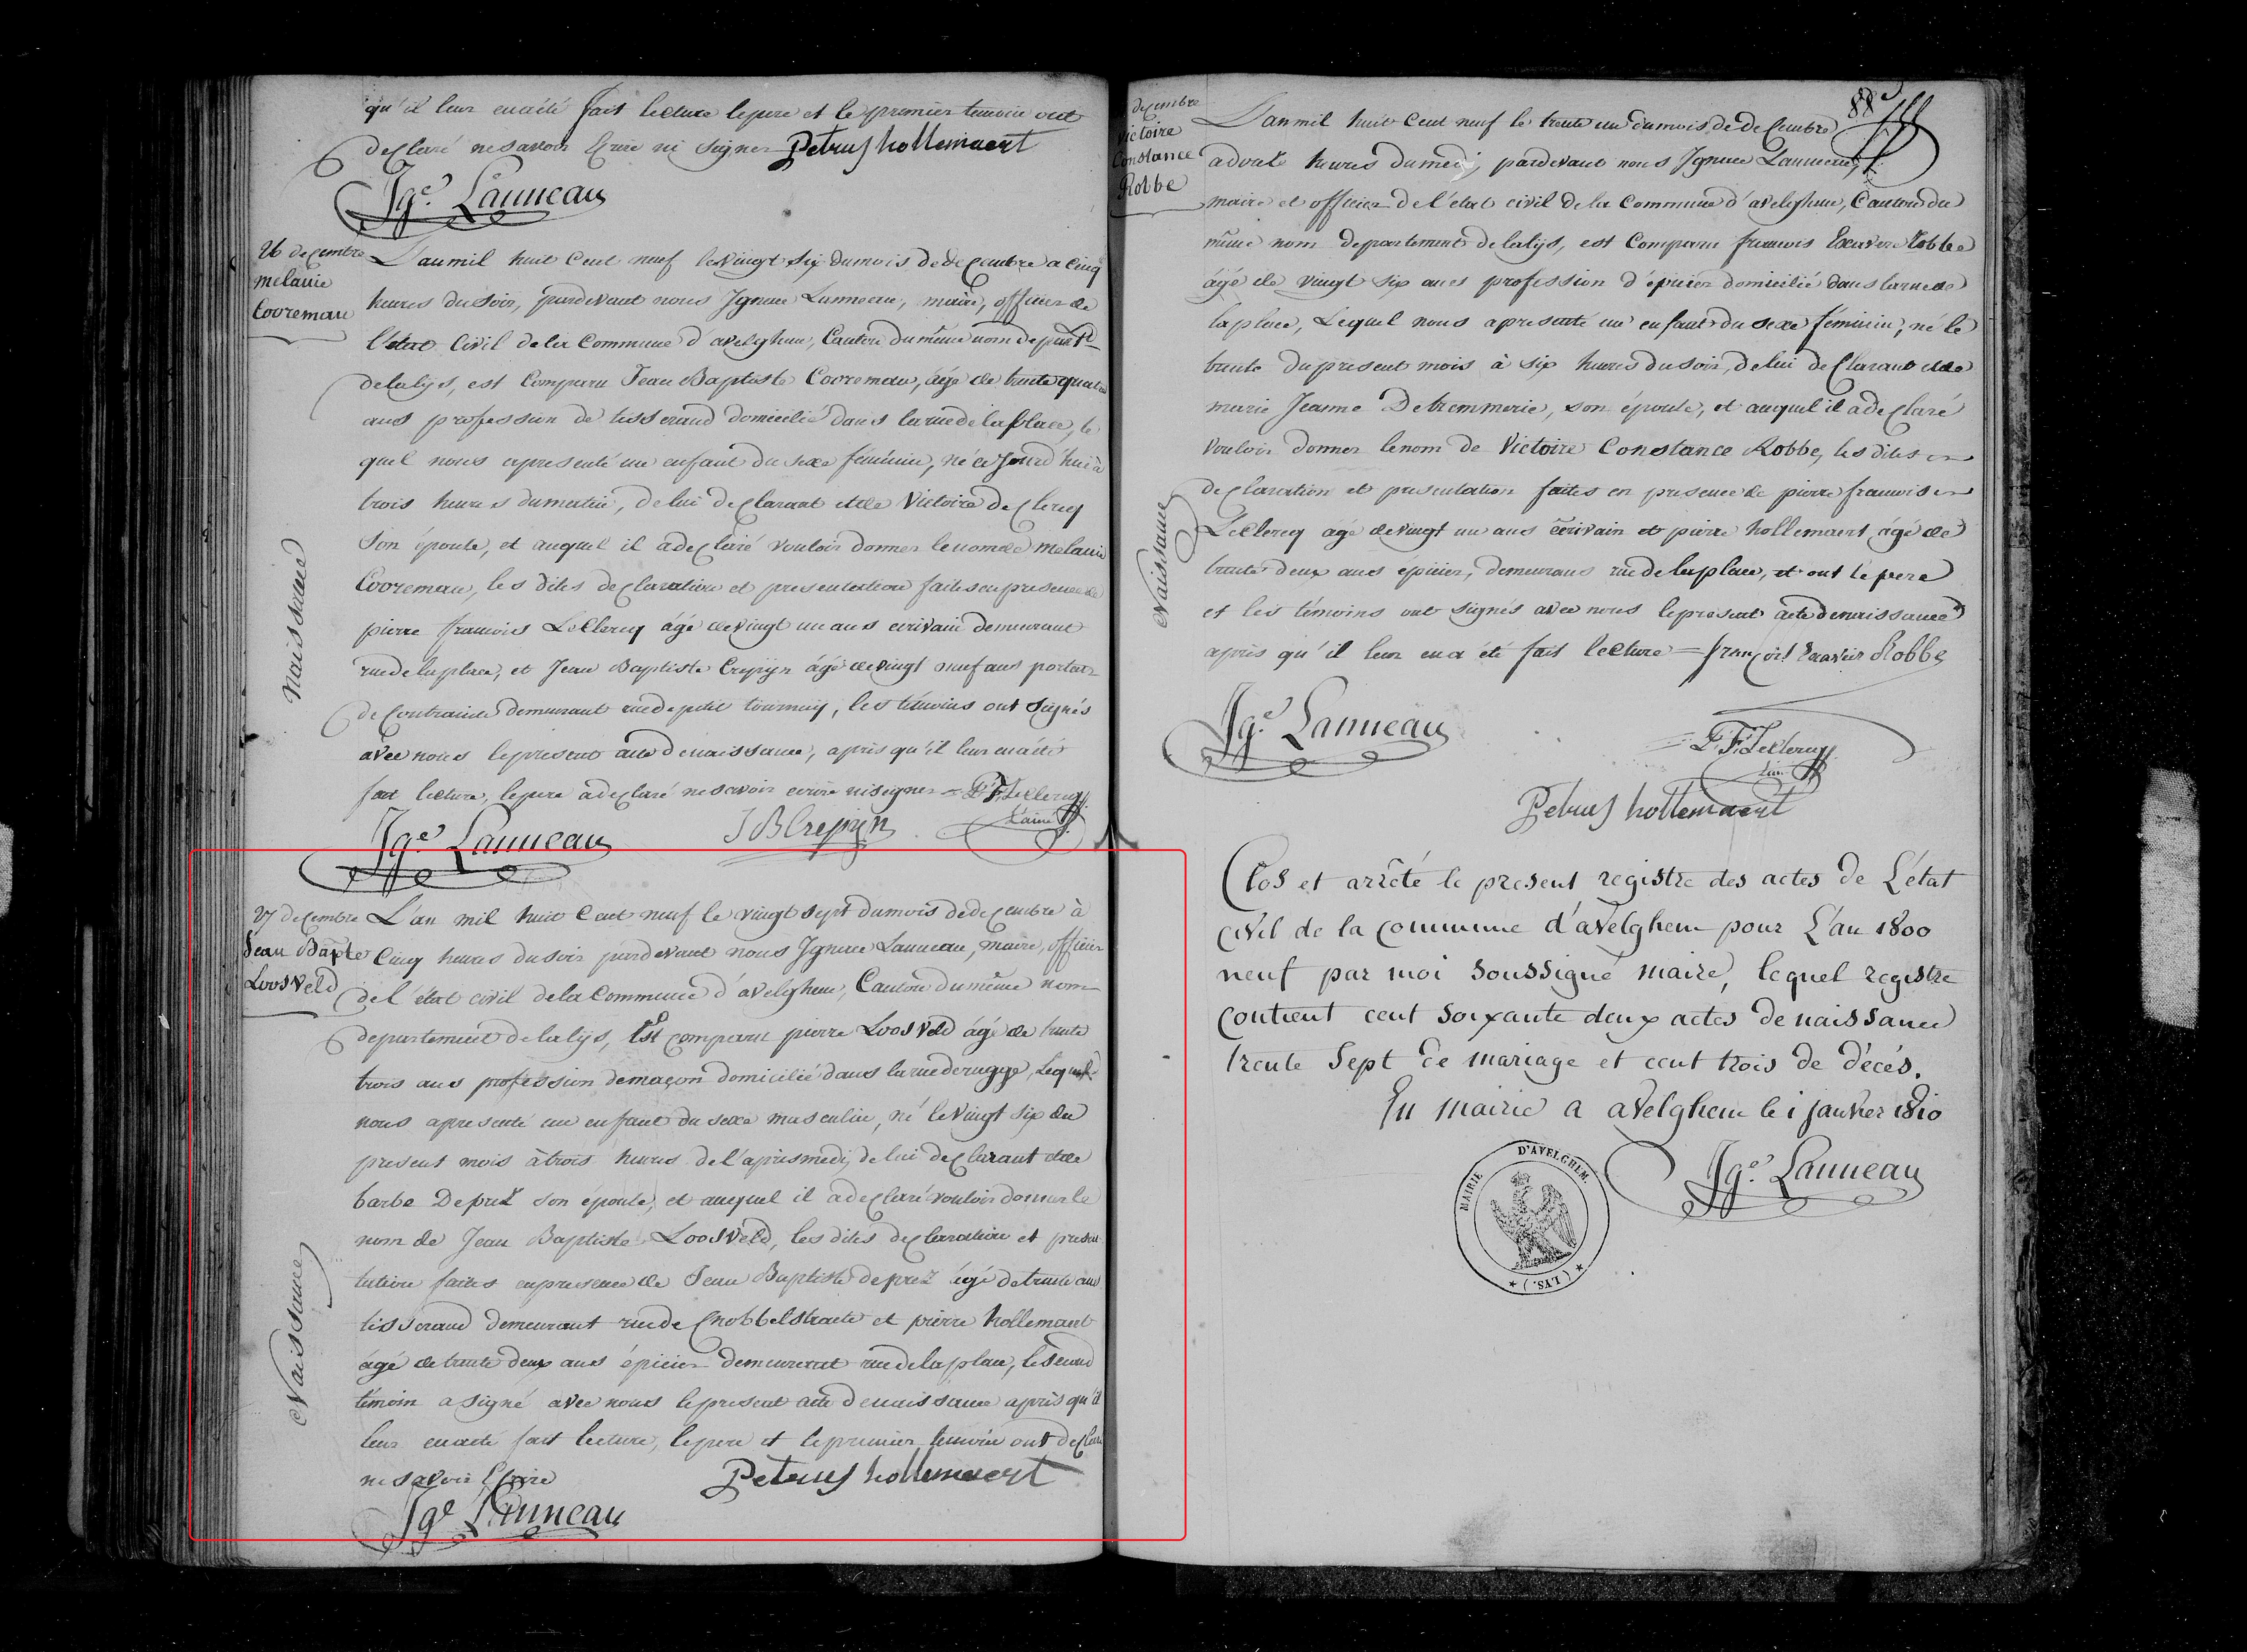 qu'il leur en a été fait lecture le pere et le premier temoin ont
declaré ne savoir Ecrire ni signer Petrus hollemaert
Jge. Lanneau
26 decembre
melanie
Cooreman
Naissance
L'an mil huit Cent neuf le vingt six du mois de decembre a cinq
heures du soir, pardevant nous Ignace Lanneau, maire, officier de
l'état Civil de la Commune d'avelghem, Canton du même nom depart.t
de la lijs, est Comparu Jean Baptiste Cooreman, âgé de trente quatre
ans profession de tisserand domicilié dans la rue de la place, le
quel nous a presenté un enfant du sexe féminin, né ce jourd'hui à
trois heures du matin, de lui declarant et de Victoire de Clercq
son épouse, et auquel il a declaré vouloir donner le nom de melanie
Cooreman, les dites declaration et presentation faites en presence de
pierre francois LeClercq âgé de vingt un ans ecrivain demeurant
rue de la place, et Jean Baptiste Crepijn âgé de vingt neuf ans porteur
de Contrainte demeurant rue de petit tournay, les témoins ont signés
avec nous le present acte de naissance, après qu'il leur en a été
fait lecture, le pere a declaré ne savoir ecrire ni signer = P. F. Leclercq
L'ainé
J B Crepijn
Jge. Lanneau
27 decembre
Jean Bapte
Loosveld
Naissance
L'an mil huit Cent neuf le vingt sept du mois de decembre à
Cinq heures du soir pardevant nous Ignace Lanneau, maire, officier
de l'état civil de la Commune d'avelghem, Canton du même nom
departement de la lijs, Est comparu pierre Loosveld âgé de trente
trois ans profession de maçon domicilié dans la rue de rugge, Lequel
nous a presenté un enfant du sexe masculin, né le vingt six du
present mois à trois heures de l'apresmedi, de lui declarant et de
barbe Deprez son épouse, et auquel il a declaré vouloir donner le
nom de Jean Baptiste Loosveld, les dites declaration et presen
tation faites en presence de Jean Baptiste deprez âgé de trente ans
tisserand demeurant rue de Cnobbelstraete et pierre hollemaert
âgé de trente deux ans épicier demeurant rue de la place, le second
témoin a signé avec nous le present acte de naissance après qu'il
leur en a été fait lecture, le pere et le premier temoin ont declaré
ne savoir Ecrire Petrus hollemaert
Jge Lanneau
88e
decembre
Victoire
Constance
Robbe
Naissance
L'an mil huit Cent neuf le trente un du mois de decembre
a douze heures du medi, pardevant nous Ignace Lanneau,
maire et officier de l'etat civil de la Commune d'avelghem, Canton du
même nom departement de la lijs, est Comparu francois Exavier Robbe
âgé de vingt six ans profession d'épicier domicilié dans la rue de
la place, Lequel nous a presenté un enfant du sexe féminin, né le
trente du present mois à six heures du soir, de lui declarant et de
marie Jeanne Detremmerie, son épouse, et auquel il a declaré
vouloir donner le nom de Victoire Constance Robbe, les dites
declaration et presentation faites en presence de pierre francois
LeClercq âgé de vingt un ans écrivain et pierre hollemaert, âgé de
trente deux ans épicier, demeurans rue de la place, et ont le pere
et les témoins ont signés avec nous le present acte de naissance
après qu'il leur en a été fait lecture = françois Exavier Robbe
Jge. Lanneau
= P. F. Leclercq
L'ainé
Petrus hollemaert
Clos et arrêté le present registre des actes de L'état
civil de la commune d'avelghem pour L'an 1800
neuf par moi soussigné maire, lequel registre
contient cent soixante deux actes de naissance
trente sept de mariage et cent trois de décés.
En mairie a avelghem le 1 janvier 1810
Jge. Lanneau
MAIRIE D'AVELGHEM.
* (LYS.) *